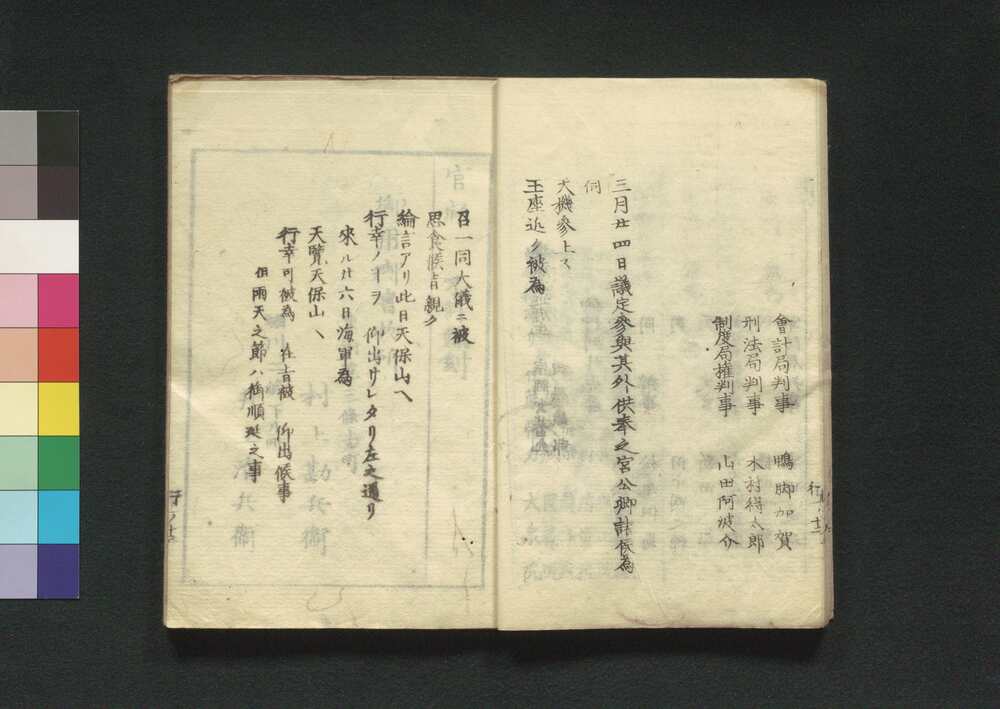 會計局判事　鴨脚加賀
刑法局判事　木村得太郎
制度局権判事　山田阿波介
三月廿四日議定参與其外供奉之宮公卿諸侯為
伺
天機参上ス
玉座近ク被為
召一同大儀ニ被
思食候旨親ク
綸言アリ此日天保山ヘ
行幸ノヿヲ　仰出サレタリ左之通リ
來ル廿六日海軍為
天覧天保山ヘ
行幸可被為　在旨被　仰出候事
但雨天之節ハ御順延之事